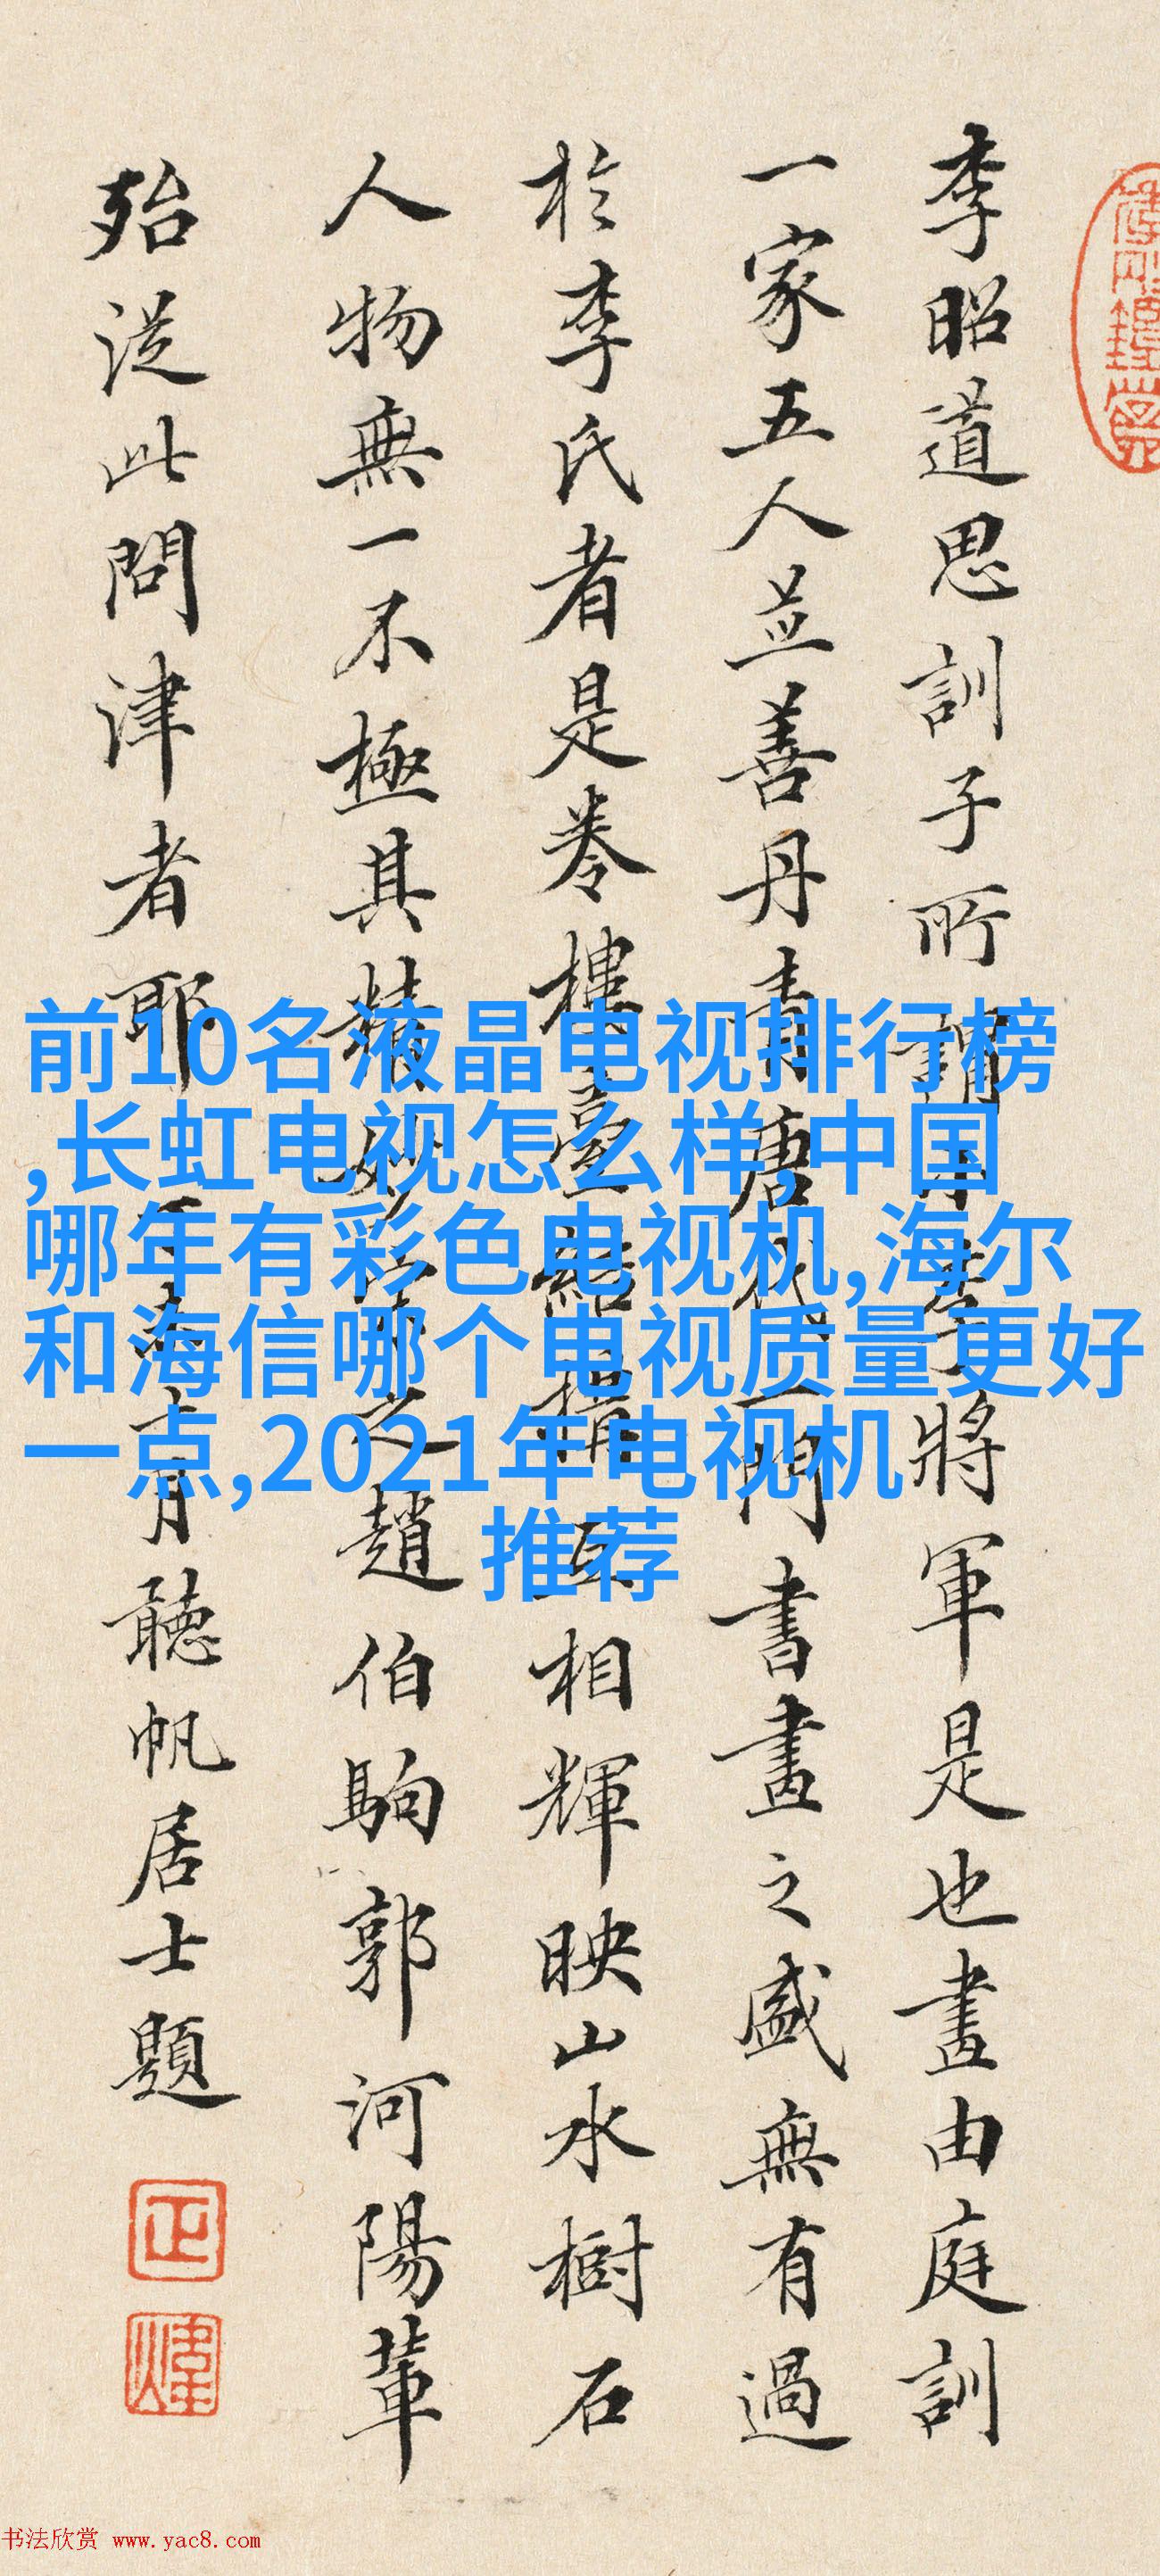 李昭道思訓子所謂小李將軍是也畫由庭訓
一家五人並善丹青唐代一門書畫之盛無有過
於李氏者是卷樓臺結構互相輝映山水樹石
人物無一不極其精妙宋之趙伯駒郭河陽輩
殆從此問津者耶
月聽帆居士題
前10名液晶电视排行榜
,长虹电视怎么样,中国
哪年有彩色电视机,海尔
和海信哪个电视质量更好
一点,2021年电视机
推荐
书法欣赏 www.yac8.com